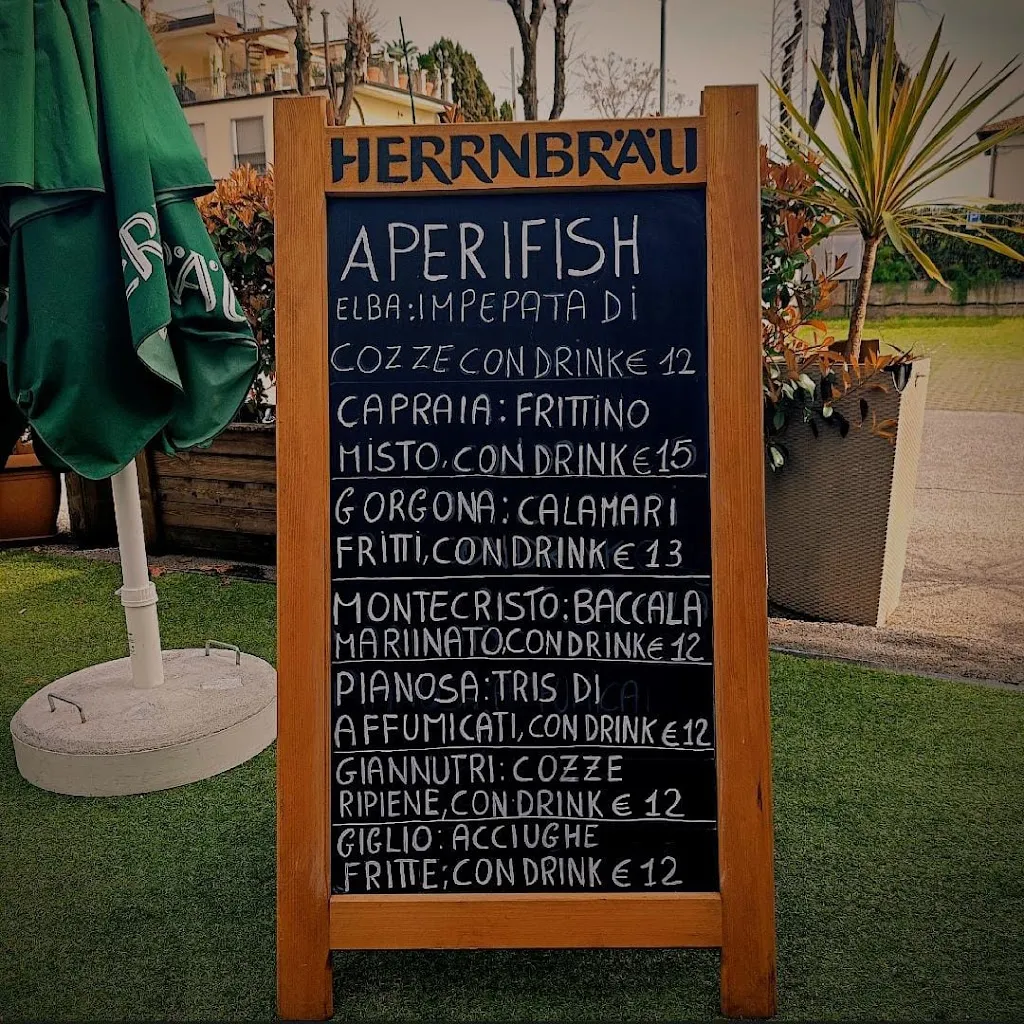 HERRNBRÄU
APERIFISH
ELBA: IMPEPATA DI
COZZE CON DRINK € 12
CAPRAIA: FRITTINO
MISTO, CON DRINK € 15
GORGONA: CALAMARI
FRITTI, CON DRINK € 13
MONTECRISTO: BACCALA
MARIINATO.CON DRINK € 12
PIANOSA: TRIS DI
AFFUMICATI, CON DRINK € 12
GIANNUTRI: COZZE
RIPIENE, CON DRINK € 12
GIGLIO: ACCIUGHE
FRITTE; CON DRINK € 12